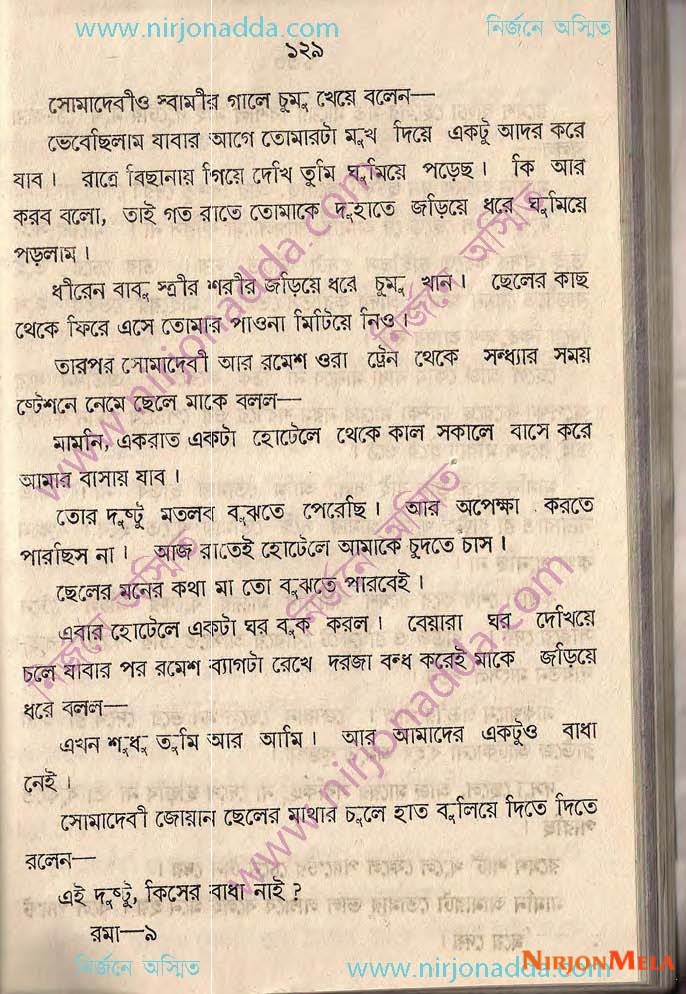 www.nirjonadda.com নির্জনে অস্মিত
১২৯
সোমাদেবীও স্বামীর গালে চুমু খেয়ে বলেন—
ভেবেছিলাম যাবার আগে তোমারটা মুখ দিয়ে একটু আদর করে
যাব। রাত্রে বিছানায় গিয়ে দেখি তুমি ঘুমিয়ে পড়েছ। কি আর
করব বলো, তাই গত রাতে তোমাকে দুহাতে জড়িয়ে ধরে ঘুমিয়ে
পড়লাম।
ধীরেন বাবু স্ত্রীর শরীর জড়িয়ে ধরে চুমু খান। ছেলের কাছ
থেকে ফিরে এসে তোমার পাওনা মিটিয়ে নিও।
তারপর সোমাদেবী আর রমেশ ওরা ট্রেন থেকে সন্ধ্যার সময়
ষ্টেশনে নেমে ছেলে মাকে বলল—
মামনি, একরাত একটা হোটেলে থেকে কাল সকালে বাসে করে
আমার বাসায় যাব।
তোর দুষ্টু মতলব বুঝতে পেরেছি। আর অপেক্ষা করতে
পারছিস না। আজ রাতেই হোটেলে আমাকে চুদতে চাস।
ছেলের মনের কথা মা তো বুঝতে পারবেই।
এবার হোটেলে একটা ঘর বুক করল। বেয়ারা ঘর দেখিয়ে
চলে যাবার পর রমেশ ব্যাগটা রেখে দরজা বন্ধ করেই মাকে জড়িয়ে
ধরে বলল—
এখন শুধু তুমি আর আমি। আর আমাদের একটুও বাধা
নেই।
সোমাদেবী জোয়ান ছেলের মাথার চুলে হাত বুলিয়ে দিতে দিতে
বলেন—
এই দুষ্টু, কিসের বাধা নাই?
রমা—৯
নির্জনে অস্মিত www.nirjonadda.com
NIRJONMELA
www.nirjonadda.com
নির্জনে অস্মিত
নির্জনে অস্মিত
নির্জনে অস্মিত
www.nirjonadda.com